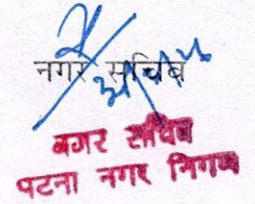 नगर सचिव
नगर सचिव
पटना नगर निगम